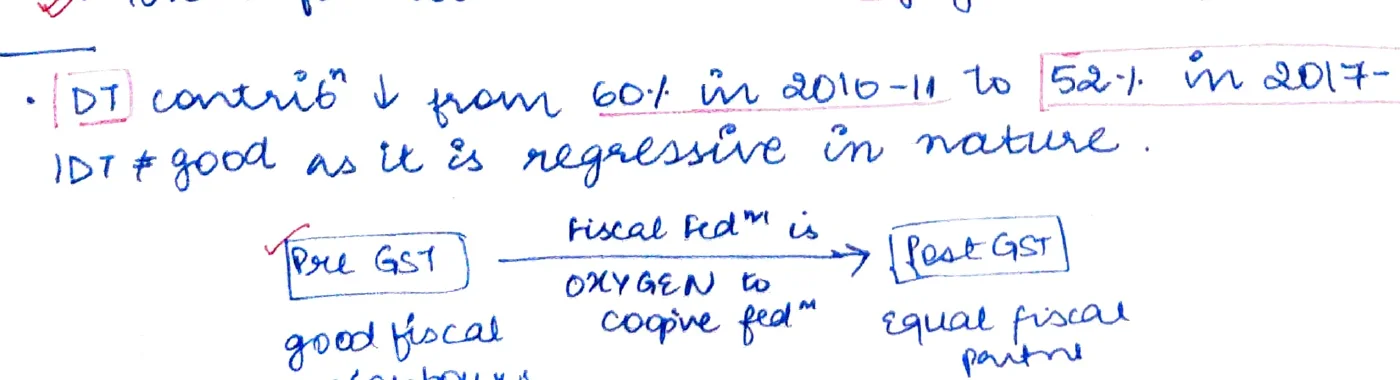 • DT contribⁿ ↓ from 60% in 2010-11 to 52% in 2017-
IDT ≠ good as it is regressive in nature.
Pre GST
Fiscal Fedᵐ is
OXYGEN to
coopive fedᵐ
Post GST
good fiscal
Equal fiscal
partne